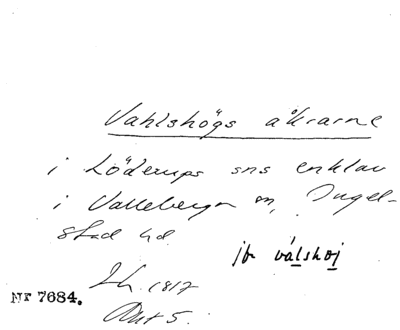 Vahlshögs åkrarne
i Löderups sns enklav
i Valleberga sn, Ingel-
stad hd
jfr válshøj
1817
Nr 7684.
Akt 5.